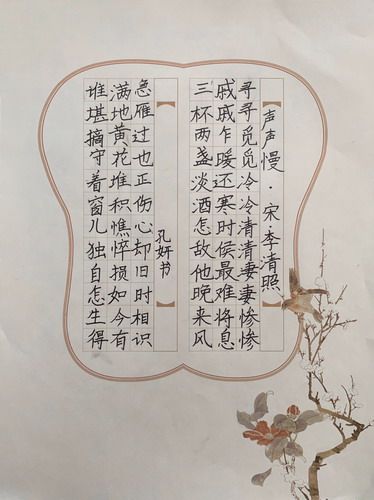 声声慢·宋·李清照
寻寻觅觅冷冷清清妻妻惨惨
戚戚乍暖还寒时侯最难将息
三杯两盏淡酒怎敌他晚来风
孔妍书
急雁过也正伤心却旧时相识
满地黄花堆积憔悴损如今有
谁堪摘守着窗儿独自怎生得